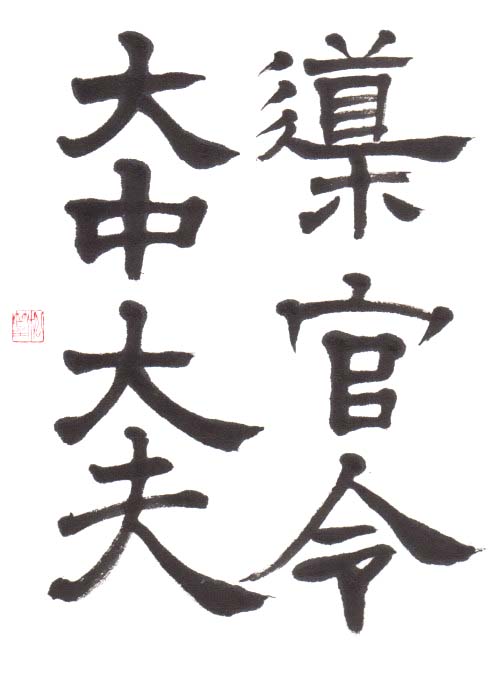 䆃官令
大中大夫